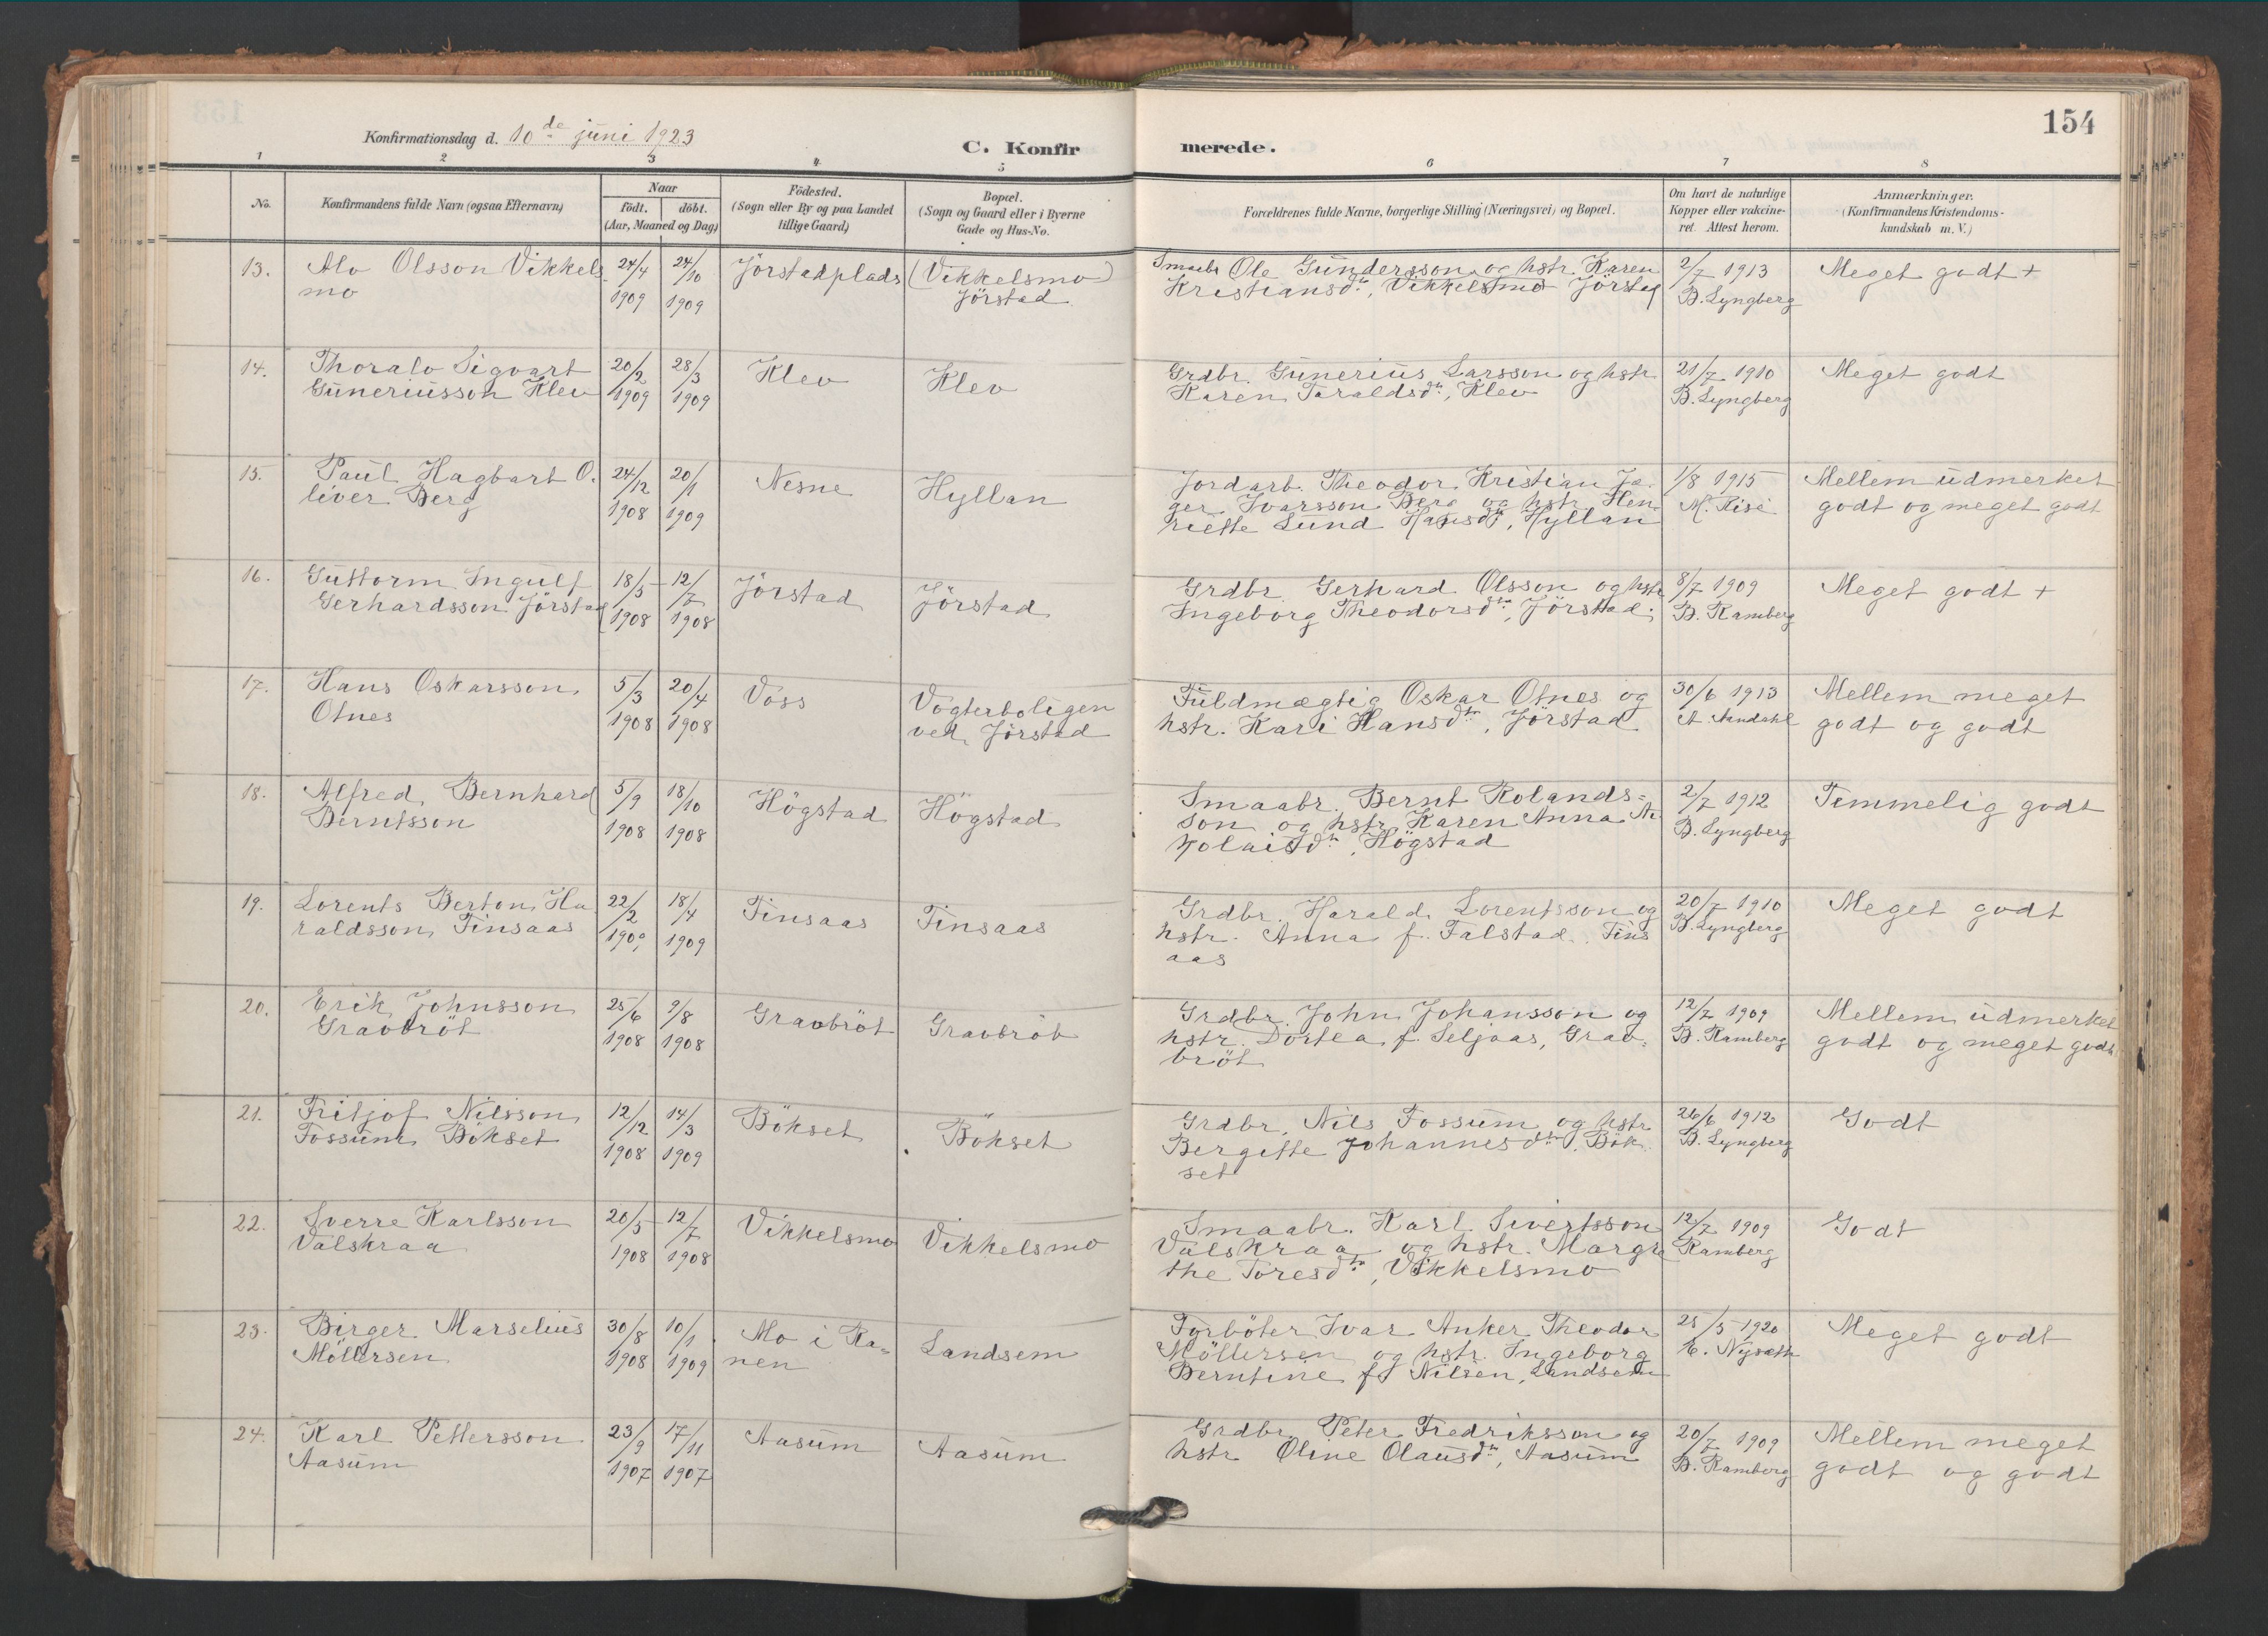 154
Konfirmationsdag d. 10de juni 1923
C. Konfirmerede.
1 2 3 4 5 6 7 8
No.
Konfirmandens fulde Navn (ogsaa Efternavn)
Naar
födt. döbt.
(Aar, Maaned og Dag)
Födested.
(Sogn eller By og paa Landet
tillige Gaard)
Bopæl.
(Sogn og Gaard eller i Byerne
Gade og Hus-No.
Forældrenes fulde Navne, borgerlige Stilling (Næringsvei) og Bopæl.
Om havt de naturlige
Kopper eller vakcine-
ret. Attest herom.
Anmærkninger.
(Konfirmandens Kristendoms-
kundskab m. V.)
13. Alv Olsson Vikkels
mo
24/4 1909
24/10 1909
Jörstadplads
(Vikkelsmo)
Jörstad
Smaabr Ole Gundersson og hstr. Karen
Kristiansdtr, Vikkelsmo Jörstad
2/7 1913
B. Lyngberg
Meget godt +
14. Thoralv Sigvart
Guneriusson Klev
20/2 1909
28/3 1909
Klev
Klev
Grdbr. Gunerius Larsson og hstr.
Karen Taraldsdtr, Klev
21/7 1910
B. Lyngberg
Meget godt
15. Paul Hagbart O.
liver Berg
24/12 1908
20/1 1909
Nesne
Hyllan
Jordarb. Theodor Kristian Ja.
ger Ivarsson Berg og hstr. Hen
riette Lund Hansdtr, Hyllan
1/8 1915
M. Risé
Mellem udmerket
godt og meget godt
16. Guttorm Ingulf
Gerhardsson Jörstad
18/5 1908
12/7 1908
Jörstad
Jörstad
Grdbr. Gerhard Olsson og hstr
Ingeborg Theodorsdtr, Jörstad.
8/7 1909
B. Ramberg
Meget godt +
17. Hans Oskarsson
Otnes
5/3 1908
20/4 1908
Voss
Vogterboligen
ved Jörstad
Fuldmægtig Oskar Otnes og
hstr. Kari Hansdtr, Jörstad
30/6 1913
Mellem meget
godt og godt
18. Alfred Bernhard
Berntsson
5/9 1908
18/10 1908
Högstad
Högstad
Smaabr. Bernt Rolands=
son og hstr. Karen Anna Ni
kolaisdtr, Högstad
2/7 1912
B. Lyngberg
Temmelig godt
19. Lorents Berton Ha
raldsson Finsaas
22/2 1909
18/4 1909
Finsaas
Finsaas
Grdbr. Harald Lorentsson og
hstr. Anna f. Falstad, Fins
aas
20/7 1910
B. Lyngberg
Meget godt
20. Erik Johnsson
Gravbröt
25/6 1908
9/8 1908
Gravbröt
Gravbröt
Grdbr. John Johansson og
hstr. Dortea f. Seljaas, Grav.
bröt
12/7 1909
B. Ramberg
Mellem udmerket
godt og meget godt
21. Fritjof Nilsson
Fossum, Bökset
12/12 1908
14/3 1909
Bökset
Bökset
Grdbr. Nils Fossum og hstr
Bergitte Johannesdtr, Bök
set
26/6 1912
B. Lyngberg
Godt
22. Sverre Karlsson
Valskraa
20/5 1908
12/7 1908
Vikkelsmo
Vikkelsmo
Smaabr. Karl Sivertsson
Valskraa og hstr. Margre
the Toresdtr, Vikkelsmo
12/7 1909
Ramberg
Godt
23. Birger Marselius
Möllersen
30/8 1908
10/1 1909
Mo i Ra=
nen
Landsem
Forböter Ivar Anker Theodor
Möllersen og hstr. Ingeborg
Berntine f. Nilsen, Landsem
25/5 1920
Meget godt
24. Karl Pettersson
Aasum
23/9 1907
17/11 1907
Aasum
Aasum
Grdbr. Peter Fredriksson og
hstr Oline Olausdtr, Aasum
20/7 1909
B. Ramberg
Mellem meget
godt og godt